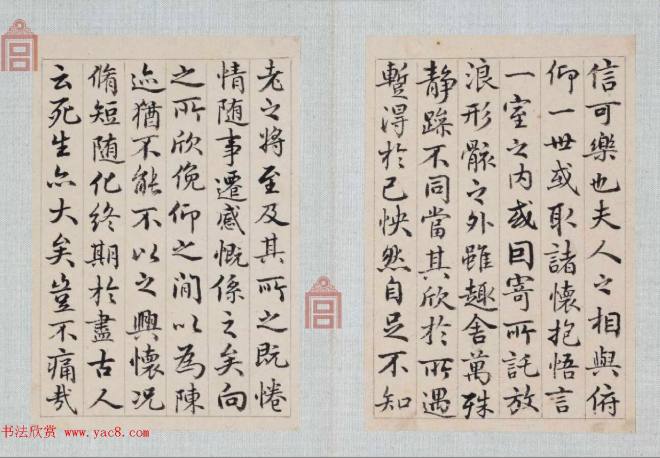 信可樂也夫人之相與俯
仰一世或取諸懷抱悟言
一室之内或因寄所託放
浪形骸之外雖趣舍萬殊
静躁不同當其欣於所遇
蹔得於己怏然自足不知
老之將至及其所之既惓
情随事遷感慨係之矣向
之所欣俛仰之閒以為陳
迹猶不能不以之興懷况
脩短随化終期於盡古人
云死生亦大矣豈不痛哉
书法欣赏 www.yac8.com